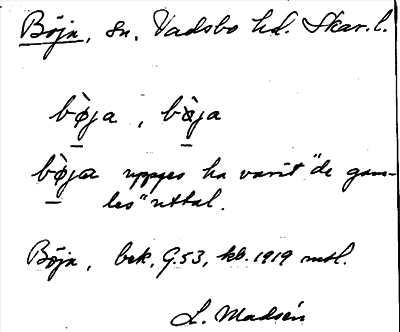 Böja, sn, Vadsbo hd. Skar. l.
bø̀ja, bø̀ja
bø̀ja uppges ha varit "de gam-
les" uttal.
Böja, bek. G. 53, kb. 1919 mtl.
L. Madsén